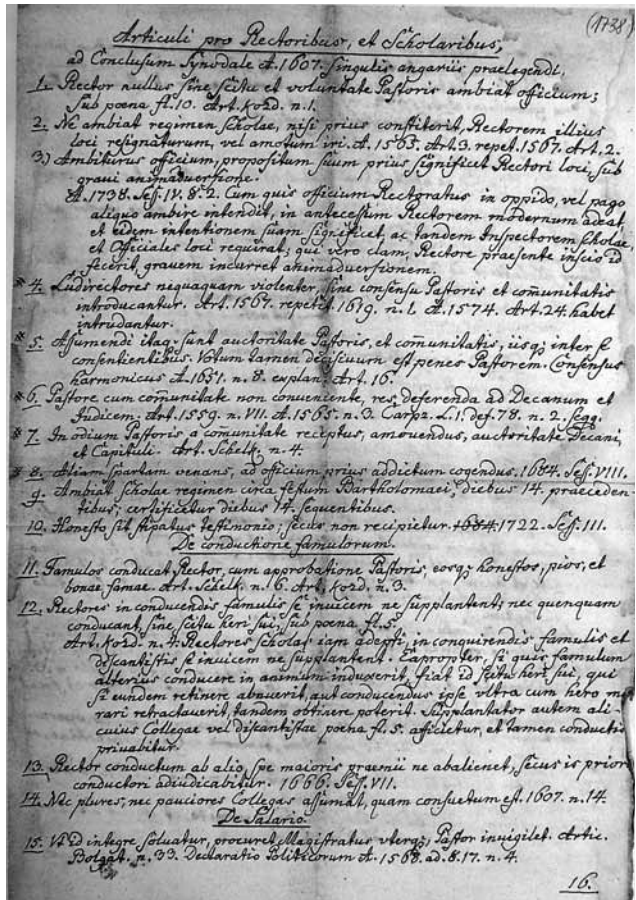 (1738)
Articuli pro Rectoribus, et Scholaribus,
ad Conclusum Synodale A. 1607. singulis angariis praelegendi,
1. Rector nullus sine scitu et voluntate Pastoris ambiat officium;
sub poena fl. 10. Art. Kozd. n. 1.
2. Ne ambiat regimen Scholae, nisi prius constiterit, Rectorem illius
loci resignaturum, vel amotum iri. A. 1565. Art. 3. repet. 1567. Art. 2.
3.) Ambiturus officium, propositum suum prius significet Rectori loci, sub
gravi animadversione.
A. 1738. Sess. IV. §. 2. Cum quis officium Rectoratus in oppido, vel pago
aliquo ambire intendit, in antecessum Rectorem modernum adeat,
et eidem intentionem suam significet, ac tandem Inspectorem Scholae,
et Officiales loci requirat; qui vero clam, Rectore praesente inscio id
fecerit, gravem incurret animadversionem.
* 4. Ludirectores nequaquam violenter, sine consensu Pastoris et comunitatis
introducantur. Art. 1567. repetit. 1619. n. 1. A. 1574. Art. 24. habet
intrudantur.
* 5. Assumendi itaq; sunt auctoritate Pastoris, et comunitatis, iisq; inter se
consentientibus. Votum tamen decisivum est penes Pastorem. Consensus
harmonicus A. 1651. n. 8. explan. Art. 16.
* 6. Pastore cum comunitate non conveniente, res deferenda ad Decanum et
Iudicem. Art. 1559. n. VII. A. 1565. n. 3. Carpz. L. 1. def. 78. n. 2. seqq.
* 7. In odium Pastoris, a comunitate receptus, amovendus, auctoritate Decani,
et Capituli. Art. Schelk. n. 4.
* 8. Aliam spartam venans, ad officium prius addictum cogendus. 1684. Sess. VIII.
9. Ambiat Scholae regimen circa festum Bartholomaei, diebus 14. praeceden-
tibus; certificetur diebus 14. sequentibus.
10. Honesto sit stipatus testimonio; secus non recipietur. 1684. 1722. Sess. III.
De conductione famulorum.
11. Famulos conducat Rector, cum approbatione Pastoris, eosq; honestos, pios, et
bonae famae. Art. Schelk. n. 6. Art. Kozd. n. 3.
12. Rectores in conducendis famulis se invicem ne supplantent; nec quenquam
conducant, sine scitu heri sui, sub poena fl. 5.
Art. Kozd. n. 4. Rectores Scholas iam adepti, in conquirendis famulis et
discantistis se invicem ne supplantent. Eapropter, si quis famulum
alterius conducere in animum induxerit, fiat id scitu heri sui, qui
si eundem retinere abnuerit, aut conducendus ipse ultra cum hero mo
rari retractaverit, tandem obtinere poterit. Supplantator autem ali
cuius Collegae vel discantistae poena fl. 5. afficietur, et tamen conductio
privabitur.
13. Rector conductum ab alio, spe maioris praemii ne abalienet, secus is priori
conductori adiudicabitur. 1666. Sess. VII.
14. Nec plures, nec pauciores Collegas assumat, quam consuetum est. 1607. n. 14.
De Salario.
15. Ut id integre solvatur, procuret Magistratus uterq; Pastor invigilet. Artic.
Bolgat. n. 33. Declaratio Politicorum A. 1568. ad. §. 17. n. 4.
16.